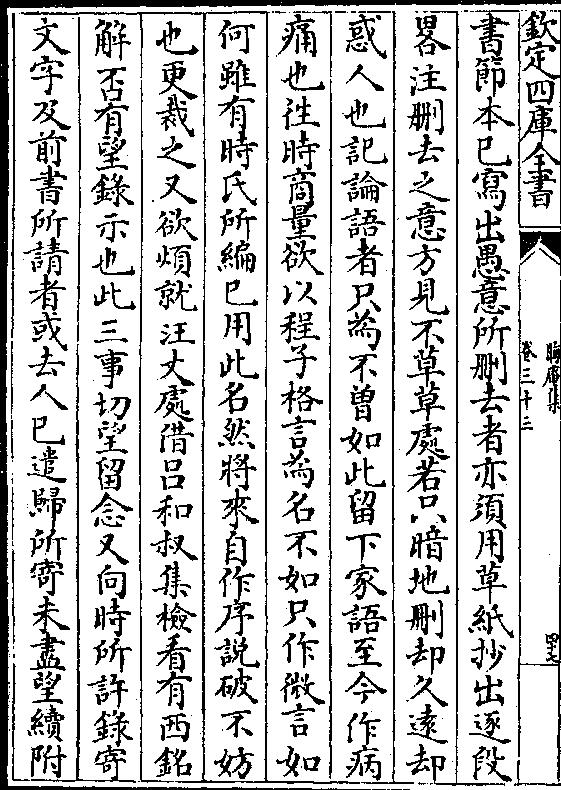 欽定四庫全書
晦庵集
卷三十三
書節本已寫出愚意所刪去者亦須用草紙抄出逐段
畧注刪去之意方見不草草處若只暗地刪却久遠却
惑人也記論語者只為不曾如此留下家語至今作病
痛也往時商量欲以程子格言為名不如只作微言如
何雖有時氏所編已用此名然將來自作序說破不妨
也更裁之又欲煩就汪丈處借呂和叔集檢看有西銘
解否有望錄示也此三事切望留念又向時所許錄寄
文字及前書所請者或去人已遣歸所寄未盡望續附